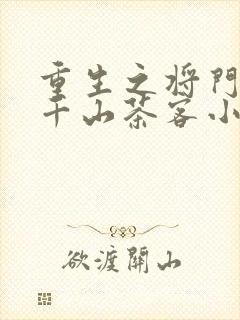 重生之将门
千山茶客小
欲渡關山